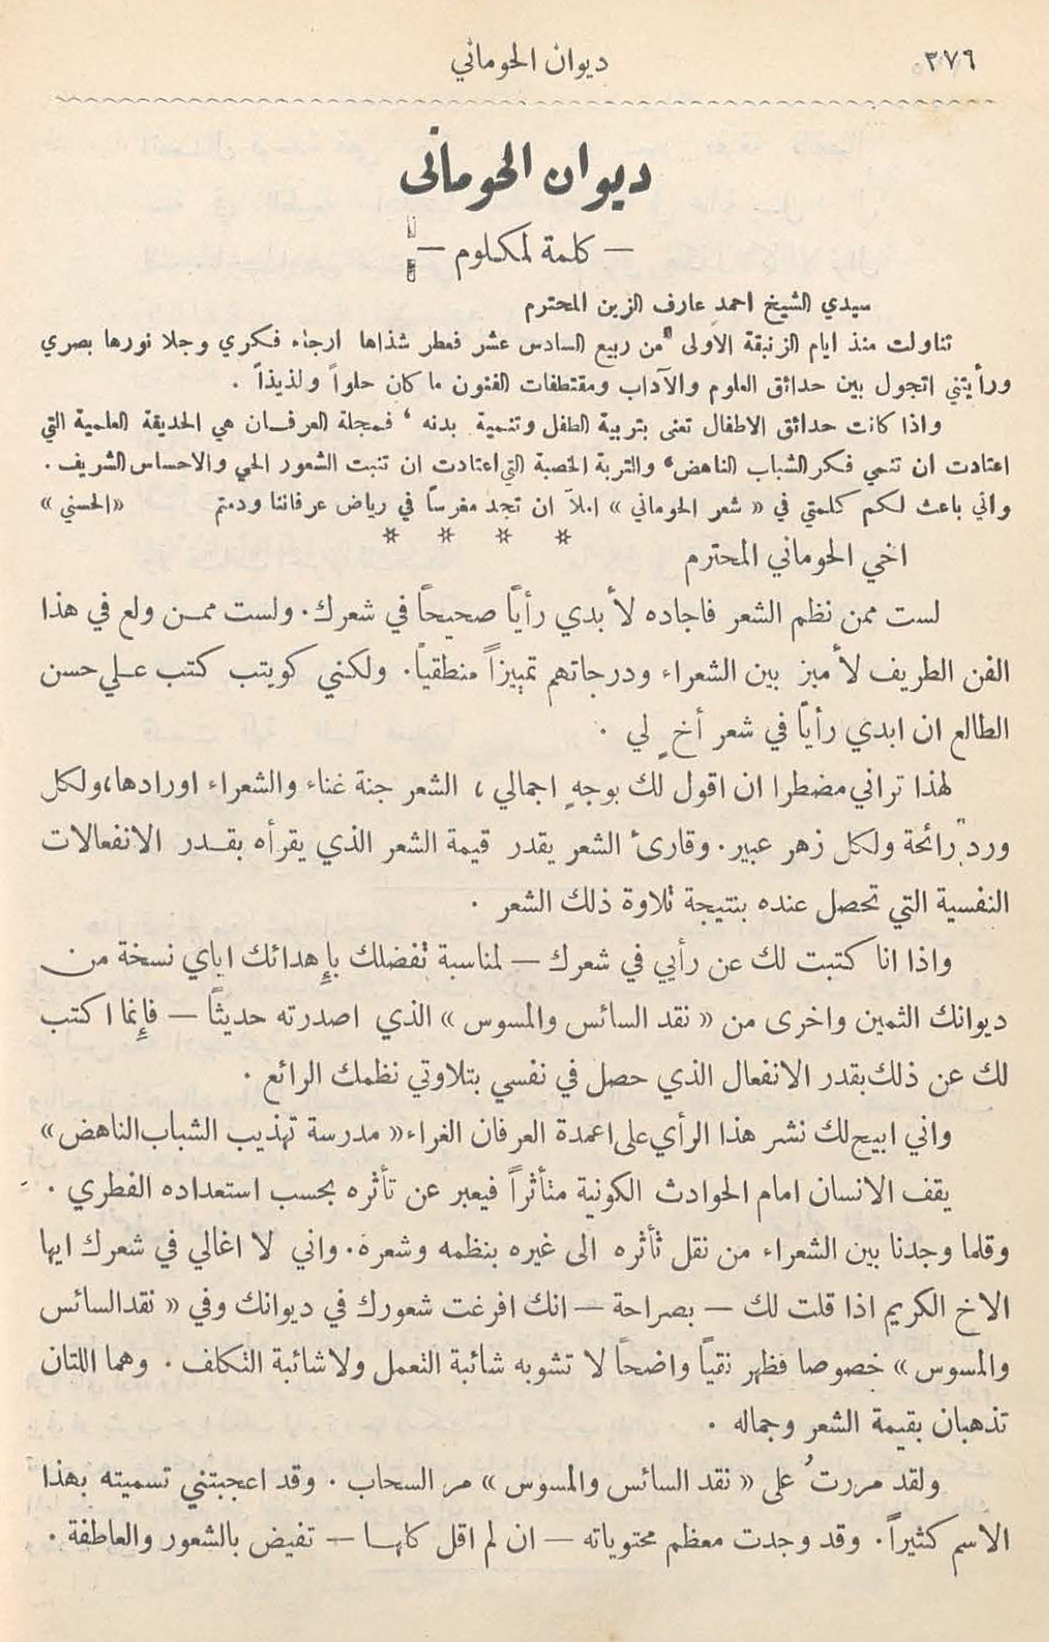 ٣٧٦ ديوان الحوماني
ديوان الحوماني
— كلمة لمكلوم —
سيدي الشيخ احمد عارف الزين المحترم
تناولت منذ ايام الزنبقة الأولى من ربيع السادس عشر فعطر شذاها ارجاء فكري وجلا نورها بصري
ورأيتني اتجول بين حدائق العلوم والآداب ومقتطفات الفنون ما كان حلواً ولذيذاً .
واذا كانت حدائق الاطفال تعنى بتربية الطفل وتنمية بدنه ، فمجلة العرفان هي الحديقة العلمية التي
اعتادت ان تنمي فكر الشباب الناهض، والتربة الخصبة التي اعتادت ان تنبت الشعور الحي والاحساس الشريف .
واني باعث لكم كلمتي في « شعر الحوماني » املاً ان تجد مغرساً في رياض عرفاننا ودمتم «الحسني »
* * * *
اخي الحوماني المحترم
لست ممن نظم الشعر فاجاده لأبدي رأياً صحيحاً في شعرك . ولست ممن ولع في هذا
الفن الطريف لأميز بين الشعراء ودرجاتهم تمييزاً منطقياً . ولكني كويتب كتب علي حسن
الطالع ان ابدي رأياً في شعر أخٍ لي .
لهذا تراني مضطرا ان اقول لك بوجهٍ اجمالي ، الشعر جنة غناء والشعراء اورادها، ولكل
وردٍ رائحة ولكل زهر عبير . وقارئ الشعر يقدر قيمة الشعر الذي يقرأه بقدر الانفعالات
النفسية التي تحصل عنده بنتيجة تلاوة ذلك الشعر .
واذا انا كتبت لك عن رأيي في شعرك — لمناسبة تفضلك بإهدائك اياي نسخة من
ديوانك الثمين واخرى من « نقد السائس والمسوس » الذي اصدرته حديثاً — فإنما اكتب
لك عن ذلك بقدر الانفعال الذي حصل في نفسي بتلاوتي نظمك الرائع .
واني ابيح لك نشر هذا الرأي على اعمدة العرفان الغراء « مدرسة تهذيب الشباب الناهض »
يقف الانسان امام الحوادث الكونية متأثراً فيعبر عن تأثره بحسب استعداده الفطري .
وقلما وجدنا بين الشعراء من نقل تأثره الى غيره بنظمه وشعره . واني لا اغالي في شعرك ايها
الاخ الكريم اذا قلت لك — بصراحة — انك افرغت شعورك في ديوانك وفي « نقد السائس
والمسوس » خصوصا فظهر نقياً واضحاً لا تشوبه شائبة التعمل ولا شائبة التكلف . وهما اللتان
تذهبان بقيمة الشعر وجماله .
ولقد مررتُ على « نقد السائس والمسوس » مر السحاب . وقد اعجبتني تسميته بهذا
الاسم كثيراً . وقد وجدت معظم محتوياته — ان لم اقل كلها — تفيض بالشعور والعاطفة .